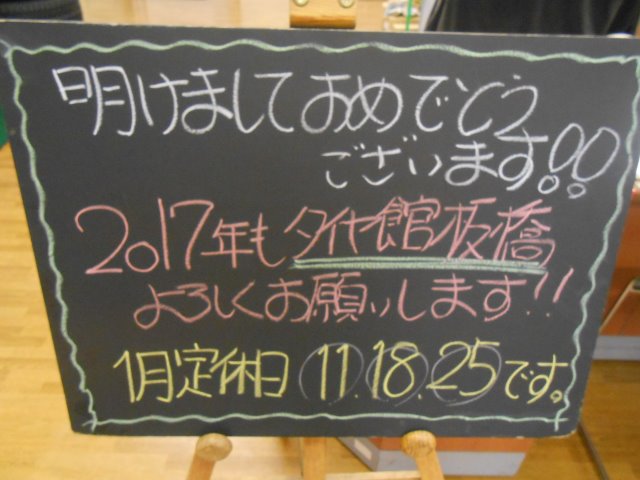 明けましておめでとう
ございます!!
2017年もタイヤ館板橋
よろしくお願いします!!
1月定休日 11.18.25です。